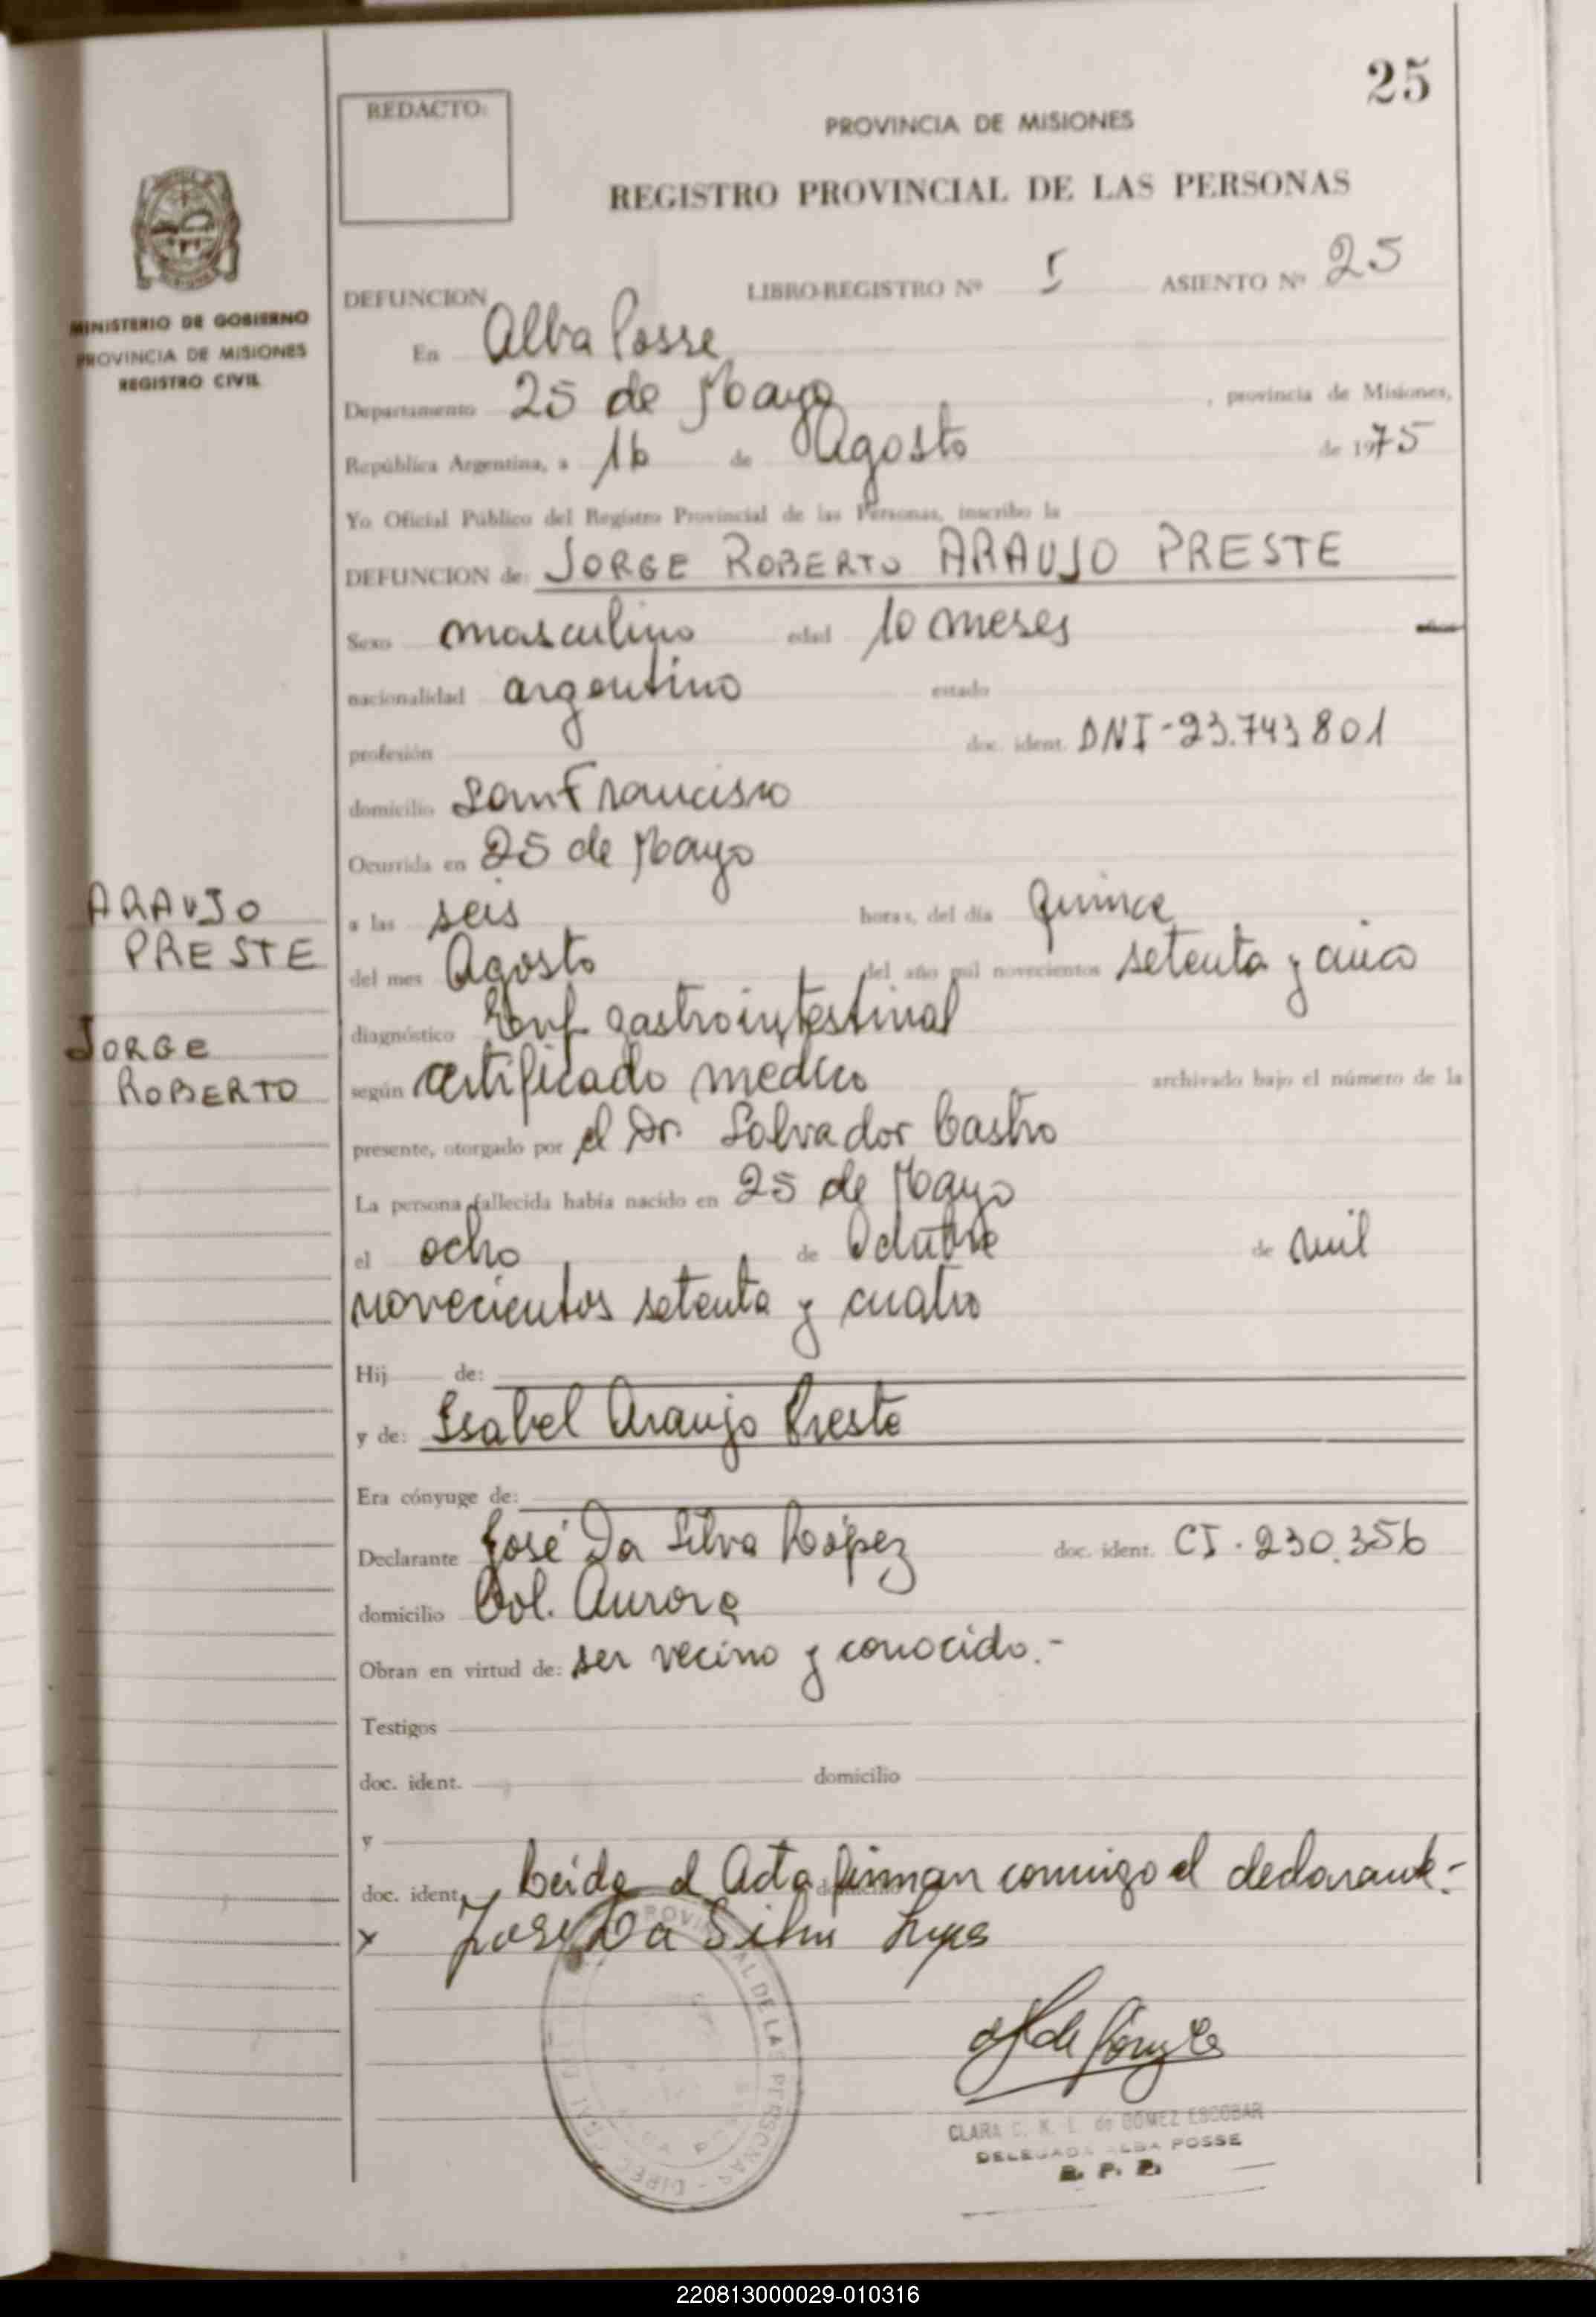 25
REDACTO:
PROVINCIA DE MISIONES
REGISTRO PROVINCIAL DE LAS PERSONAS
MINISTERIO DE GOBIERNO
PROVINCIA DE MISIONES
REGISTRO CIVIL
DEFUNCION LIBRO-REGISTRO Nº I ASIENTO Nº 25
En Alba Posse
Departamento 25 de Mayo, provincia de Misiones,
República Argentina, a 16 de Agosto de 1975
Yo Oficial Público del Registro Provincial de las Personas, inscribo la
DEFUNCION de: JORGE ROBERTO ARAUJO PRESTE
Sexo masculino edad 10 meses
nacionalidad argentino estado
profesión doc. ident. DNI-23.743801
domicilio San Francisco
Ocurrida en 25 de Mayo
ARAUJO
PRESTE
JORGE
ROBERTO
a las seis horas, del día quince
del mes Agosto del año mil novecientos setenta y cinco
diagnóstico Enf. gastrointestinal
según certificado medico archivado bajo el número de la
presente, otorgado por el Dr. Salvador Castro
La persona fallecida había nacido en 25 de Mayo
el ocho de Octubre de mil
novecientos setenta y cuatro
Hij de:
y de: Isabel Araujo Preste
Era cónyuge de:
Declarante José Da Silva López doc. ident. CI. 230.356
domicilio Col. Aurora
Obran en virtud de: ser vecino y conocido.-
Testigos
doc. ident. domicilio
y
doc. ident. Leida el Acta firman conmigo el declarante.-
x Jose Da Silva
PROVINCIAL DE LAS PERSONAS -
CLARA C. de GOMEZ ESCOBAR
DELEGADA ALBA POSSE
R. P. P.
220813000029-010316